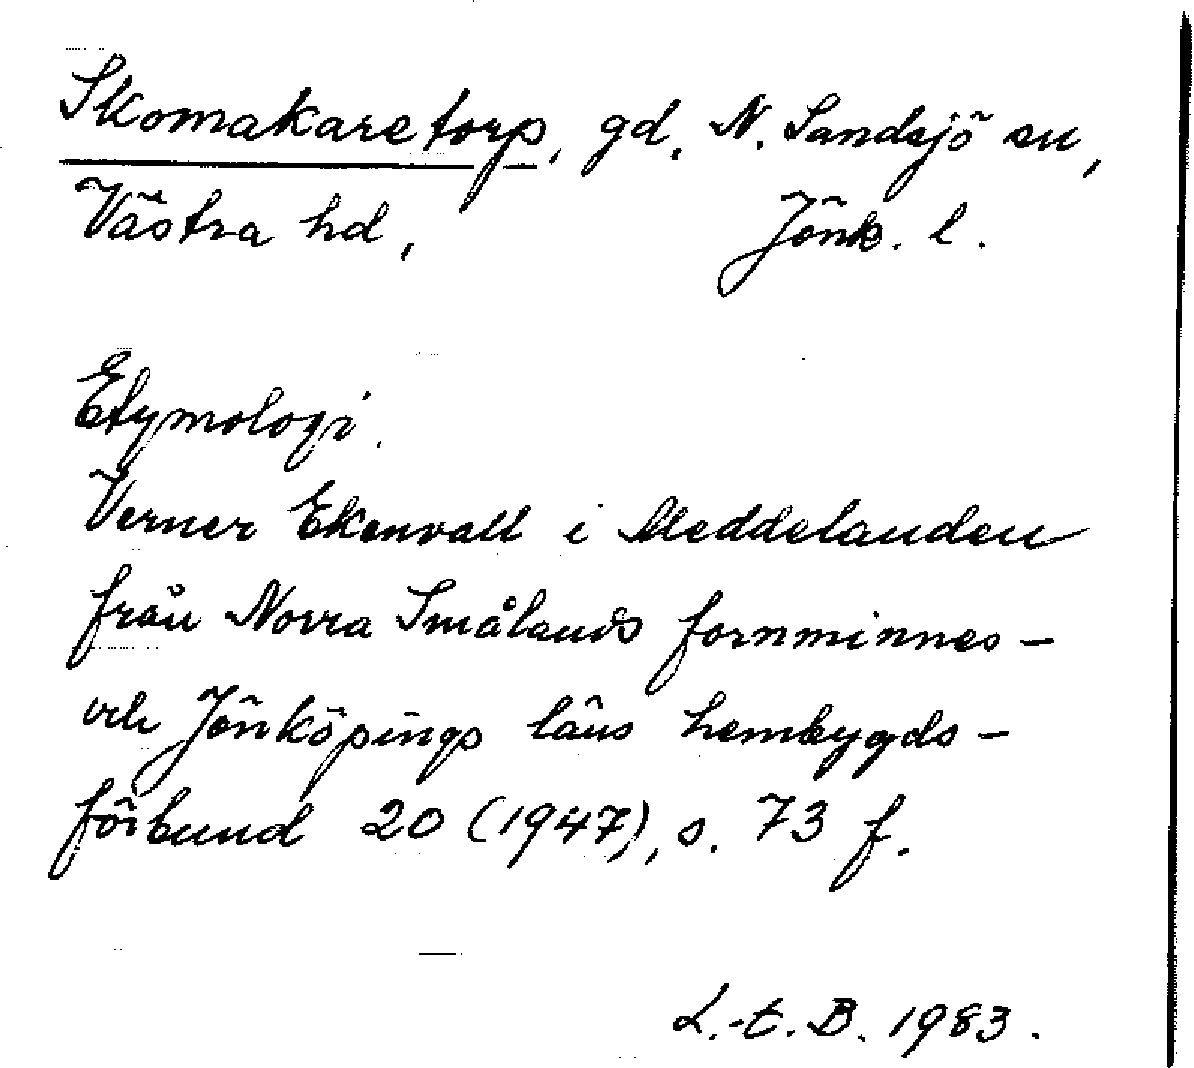 Skomakaretorp, gd, N. Sandsjö sn,
Västra hd, Jönk. l.
Etymologi.
Verner Ekenvall i Meddelanden
från Norra Smålands fornminnes-
och Jönköpings läns hembygds-
förbund 20 (1947), s. 73 f.
L.-E. B. 1983.